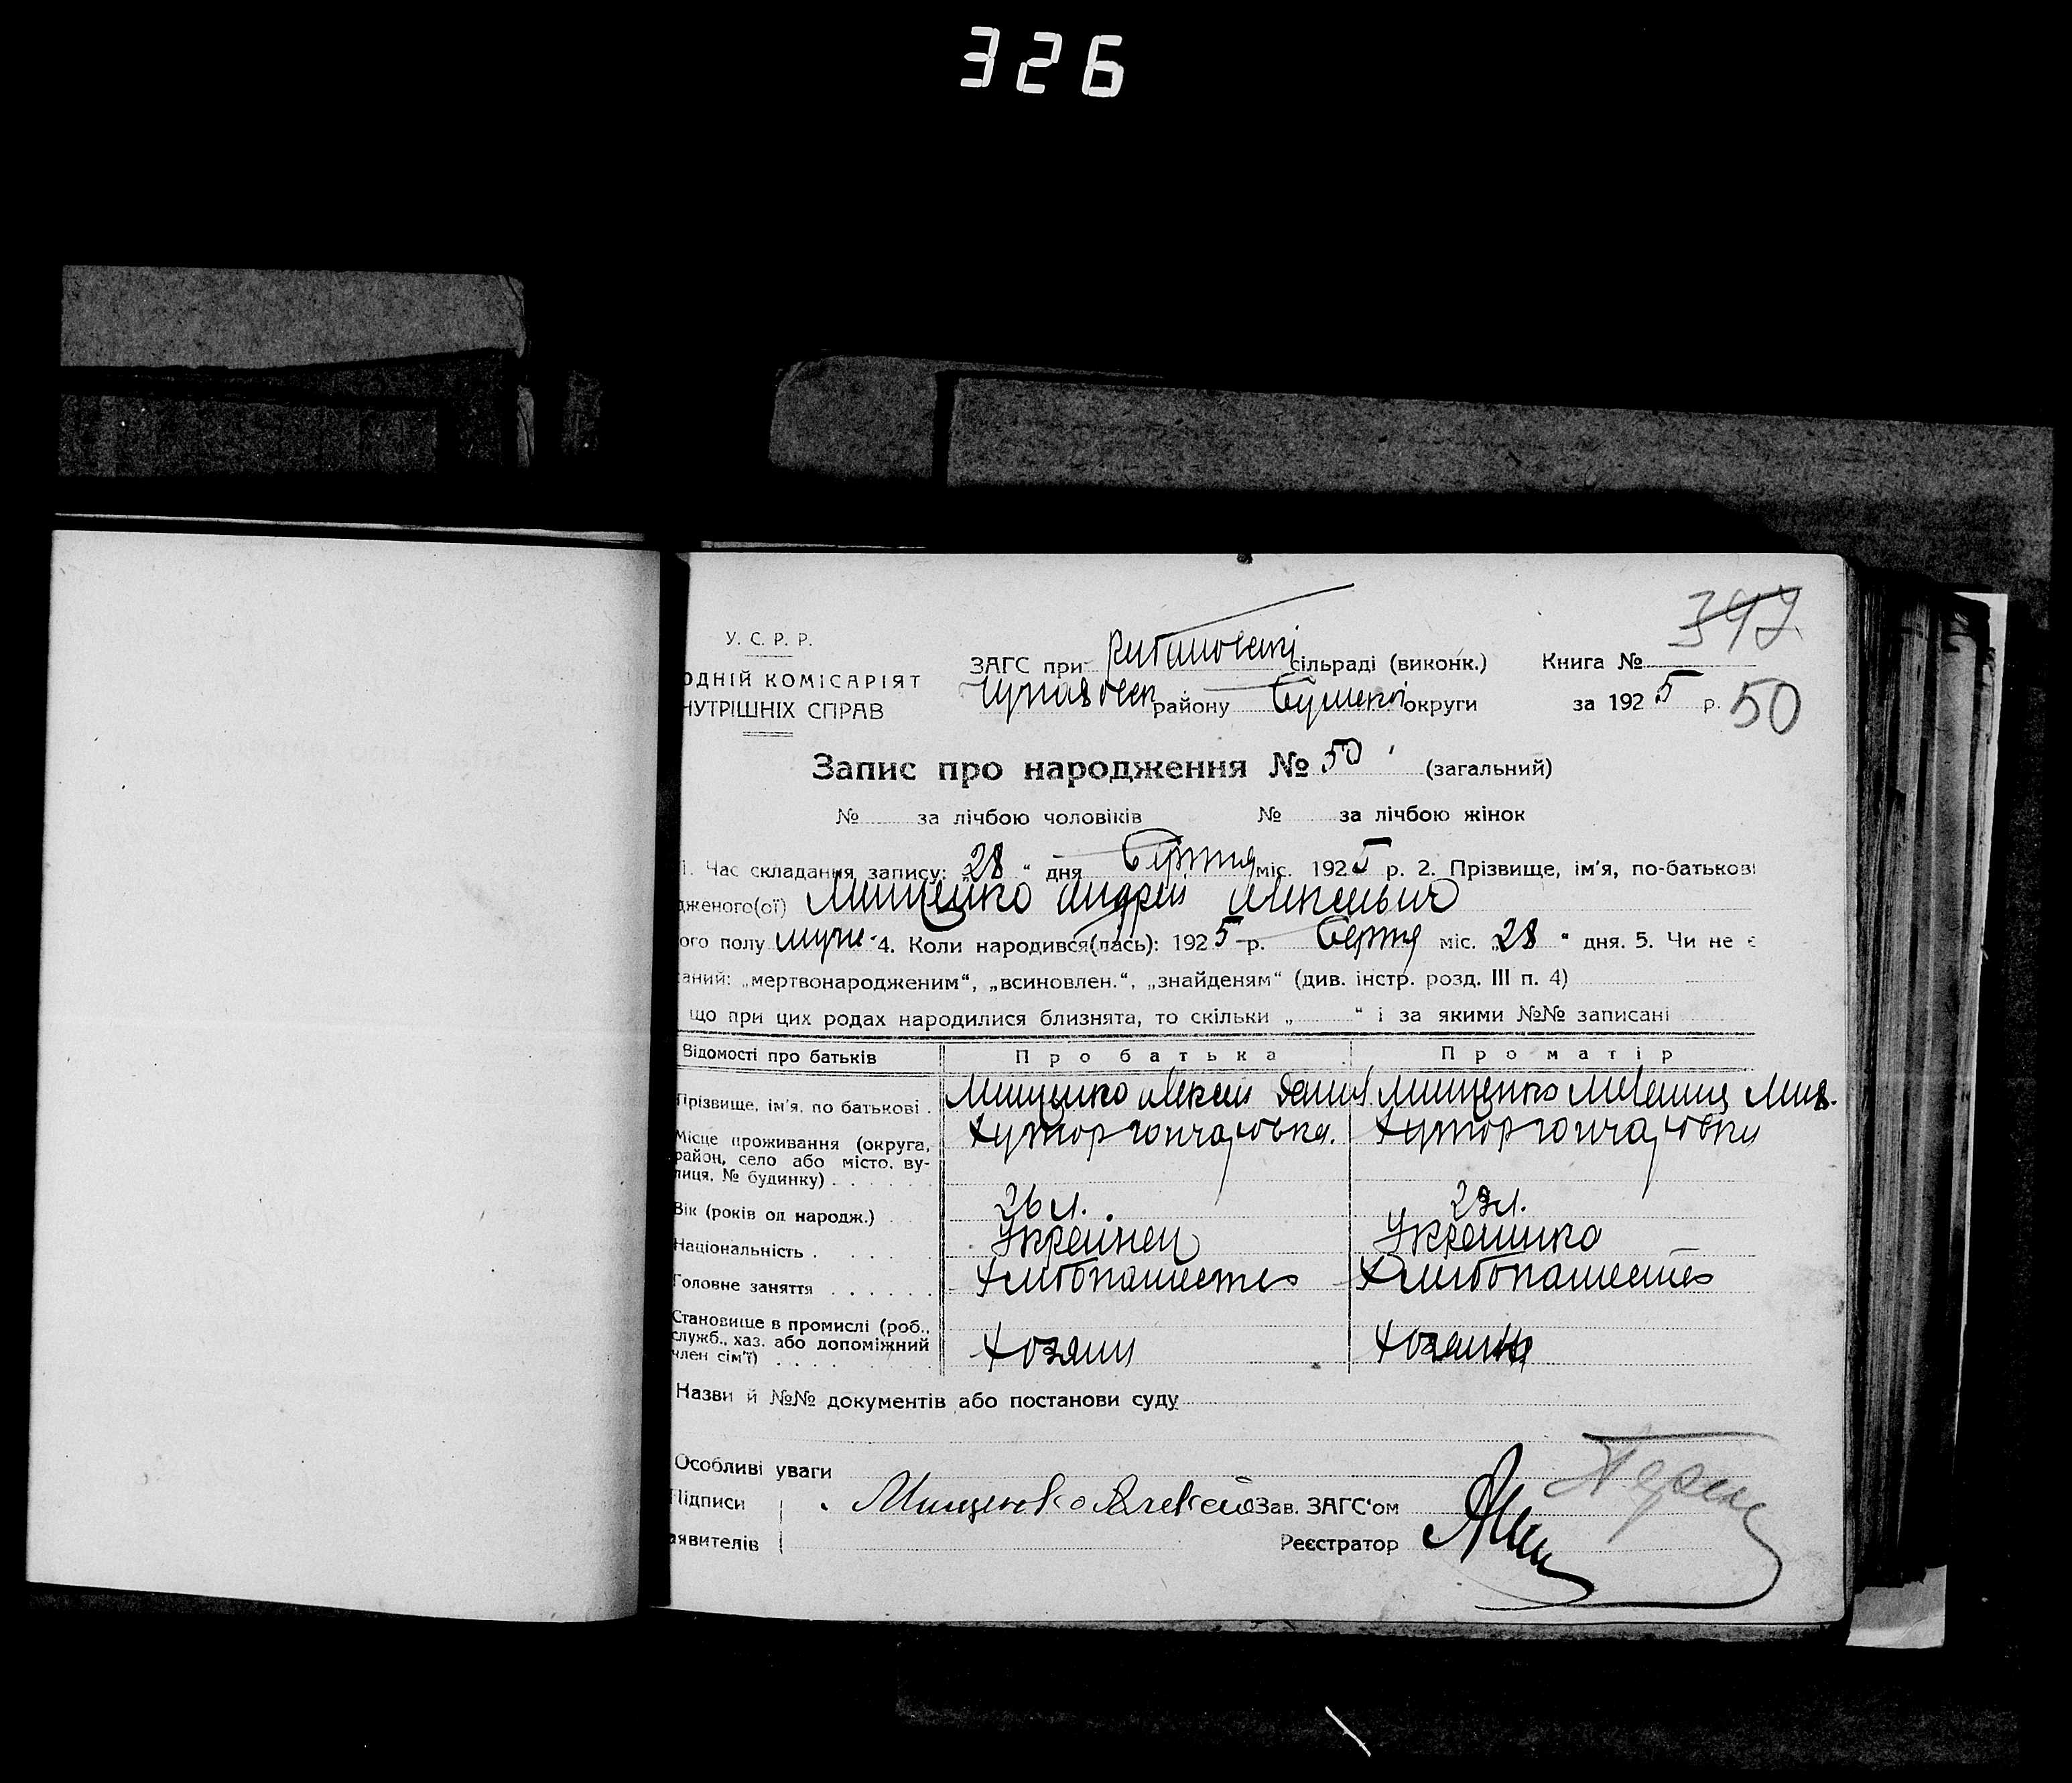 326
397
У. С. Р. Р.
ЗАГС при сільраді (виконк.) Книга №
ОДНІЙ КОМІСАРІЯТ
району Сумської округи за 1925 р. 50
НУТРІШНІХ СПРАВ
Запис про народження № 50 (загальний)
№ за лічбою чоловіків № за лічбою жінок
1. Час складання запису: „28“ дня Серпня міс. 1925 р. 2. Прізвище, ім'я, по-батькові
дженого(ої) Мищенко Андрей Алексеевич
ого полу муж. 4. Коли народився(лась): 1925 р. Серпня міс. „28“ дня. 5. Чи не є
аний: „мертвонародженим“, „всиновлен.“, „знайденям“ (див. інстр. розд. III п. 4)
що при цих родах народилися близнята, то скільки „ “ і за якими №№ записані
Відомості про батьків Про батька Про матір
Прізвище, ім'я, по батькові . Мищенко Алексей Данил Мищенко
Місце проживання (округа, район, село або місто, вулиця, № будинку) . . . . . Хутор Гончаровка. Хутор Гончаровка
Вік (років од народж.) 26 л. 23 л.
Національність . . . . . Украинец Украинка
Головне заняття . . . . . . Хлибопашество Хлибопашество
Становище в промислі (роб., служб., хаз. або допоміжний член сім'ї) . . . . . Хозяин Хозяйка
Назви й №№ документів або постанови суду
Особливі уваги
Підписи Мищенко Алексей Зав. ЗАГС'ом
аявителів Реєстратор